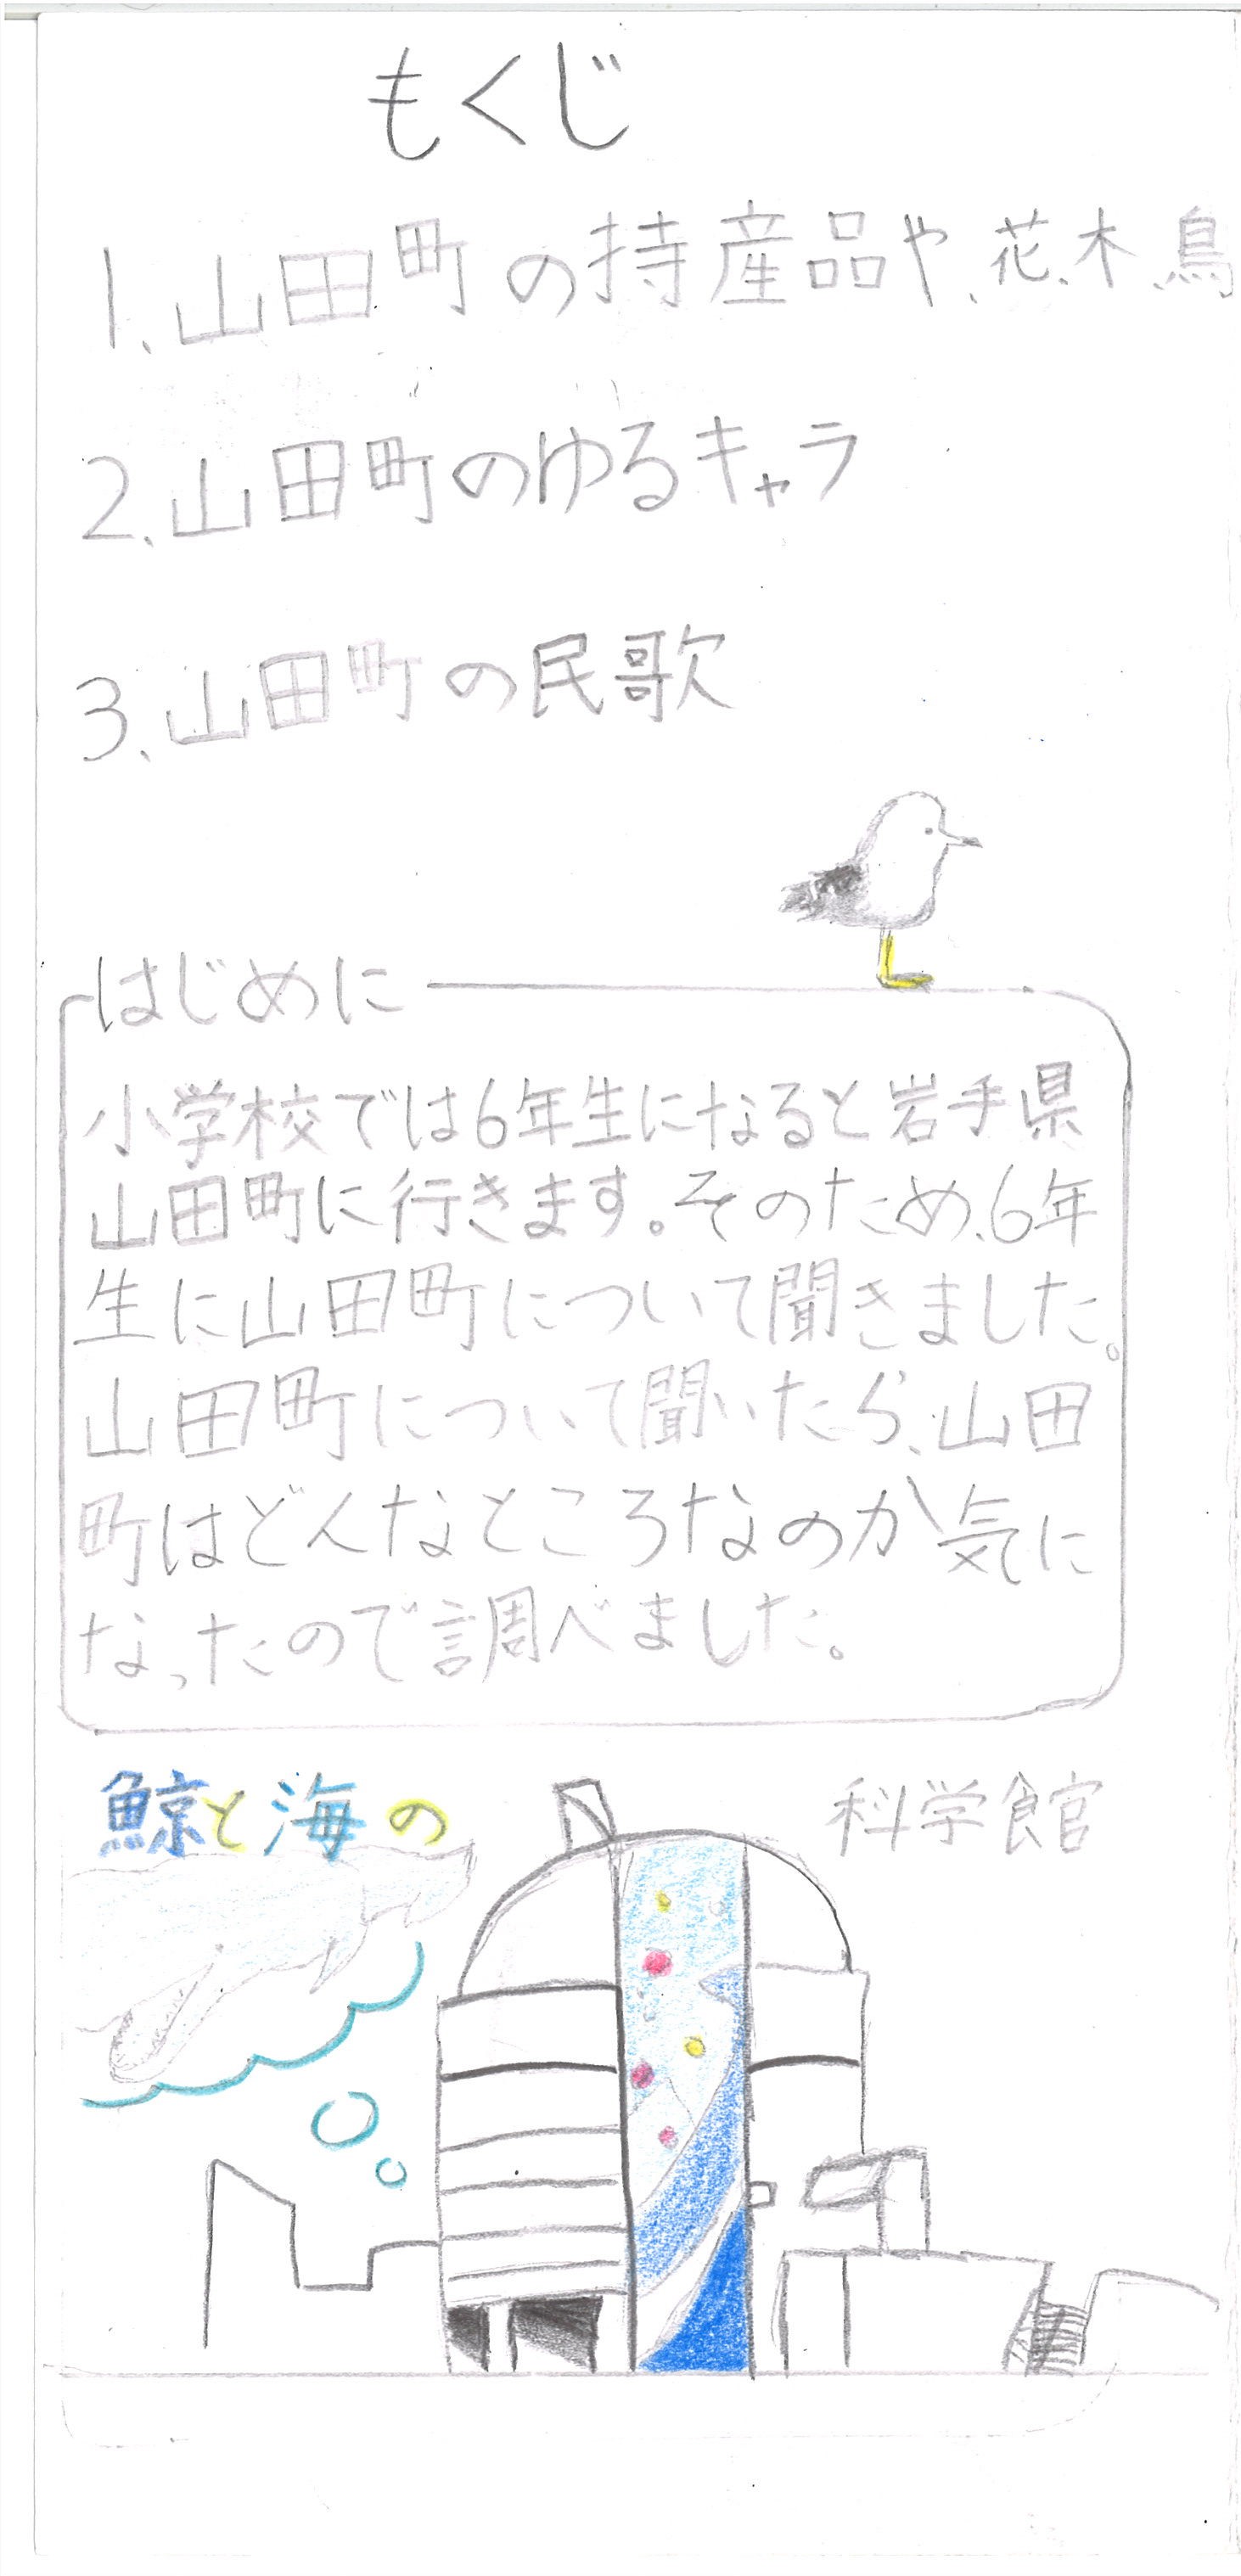 もくじ
1、山田町の持産品や、花、木、鳥
2、山田町のゆるキャラ
3、山田町の民歌
はじめに
小学校では6年生になると岩手県
山田町に行きます。そのため、6年
生に山田町について聞きました。
山田町について聞いたら、山田
町はどんなところなのか気に
なったので調べました。
鯨と海の 科学館